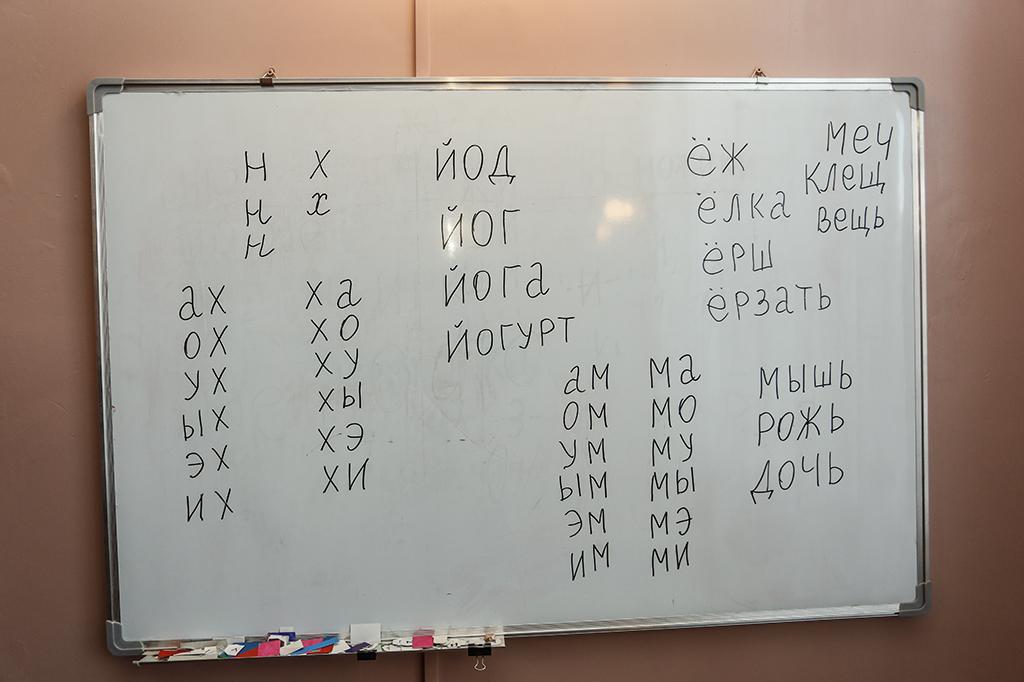 Н Х
н х
н
ах
ох
ух
ых
эх
их
ха
хо
ху
хы
хэ
хи
йод
йог
йога
йогурт
ёж
ёлка
ёрш
ёрзать
меч
клещ
вещь
ам
ом
ум
ым
эм
им
ма
мо
му
мы
мэ
ми
мышь
рожь
дочь